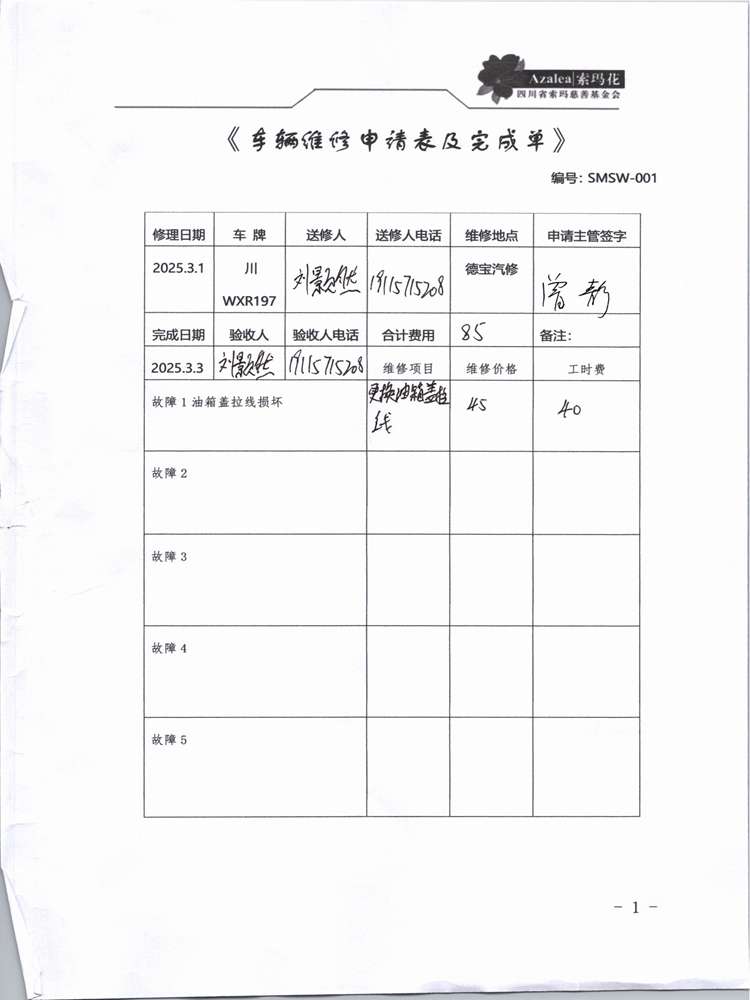 Azalea|索玛花
四川省索玛慈善基金会
《车辆维修申请表及完成单》
编号：SMSW-001
修理日期 车 牌 送修人 送修人电话 维修地点 申请主管签字
2025.3.1 川 WXR197 刘景 19115715208 德宝汽修 曾
完成日期 验收人 验收人电话 合计费用 85 备注：
2025.3.3 刘景 19115715208 维修项目 维修价格 工时费
故障 1 油箱盖拉线损坏 更换油箱盖拉线 45 40
故障 2
故障 3
故障 4
故障 5
- 1 -